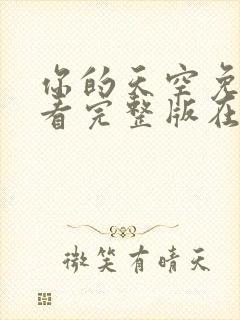 你的天空免
看完整版在
微笑有晴天